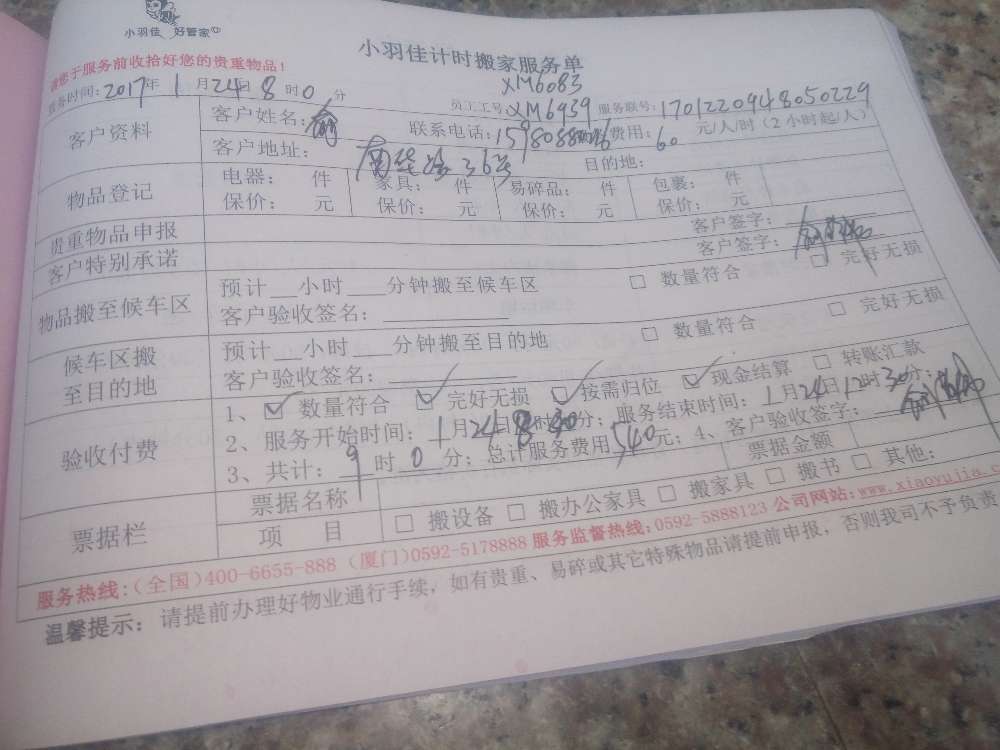 小羽佳 好管家
小羽佳计时搬家服务单
请您于服务前收拾好您的贵重物品！
XM6083
服务时间：2017年1月24日8时0分 员工工号：XM6939 服务联号：1701220948050229
客户资料 客户姓名：俞 联系电话： 费用：60元/人/时（2小时起/人）
客户地址：南华路36号 目的地：
物品登记 电器： 件 家具： 件 易碎品： 件 包裹： 件
保价： 元 保价： 元 保价： 元 保价： 元
贵重物品申报 客户签字：
客户特别承诺 客户签字：
物品搬至候车区 预计__小时___分钟搬至候车区 □ 数量符合 □ 完好无损
客户验收签名：
候车区搬至目的地 预计__小时___分钟搬至目的地 □ 数量符合 □ 完好无损
客户验收签名：
验收付费 1、☑ 数量符合 ☑ 完好无损 ☑ 按需归位 ☑ 现金结算 □ 转账汇款
2、服务开始时间：1月24日8时30分；服务结束时间：1月24日12时30分；
3、共计：9时0分；总计服务费用540元；4、客户验收签字：
票据栏 票据名称 票据金额
项 目 □ 搬设备 □ 搬办公家具 □ 搬家具 □ 搬书 □ 其他：
服务热线：（全国）400-6655-888（厦门）0592-5178888 服务监督热线：0592-5888123 公司网站：www.xiaoyujia.c
温馨提示：请提前办理好物业通行手续，如有贵重、易碎或其它特殊物品请提前申报，否则我司不予负责